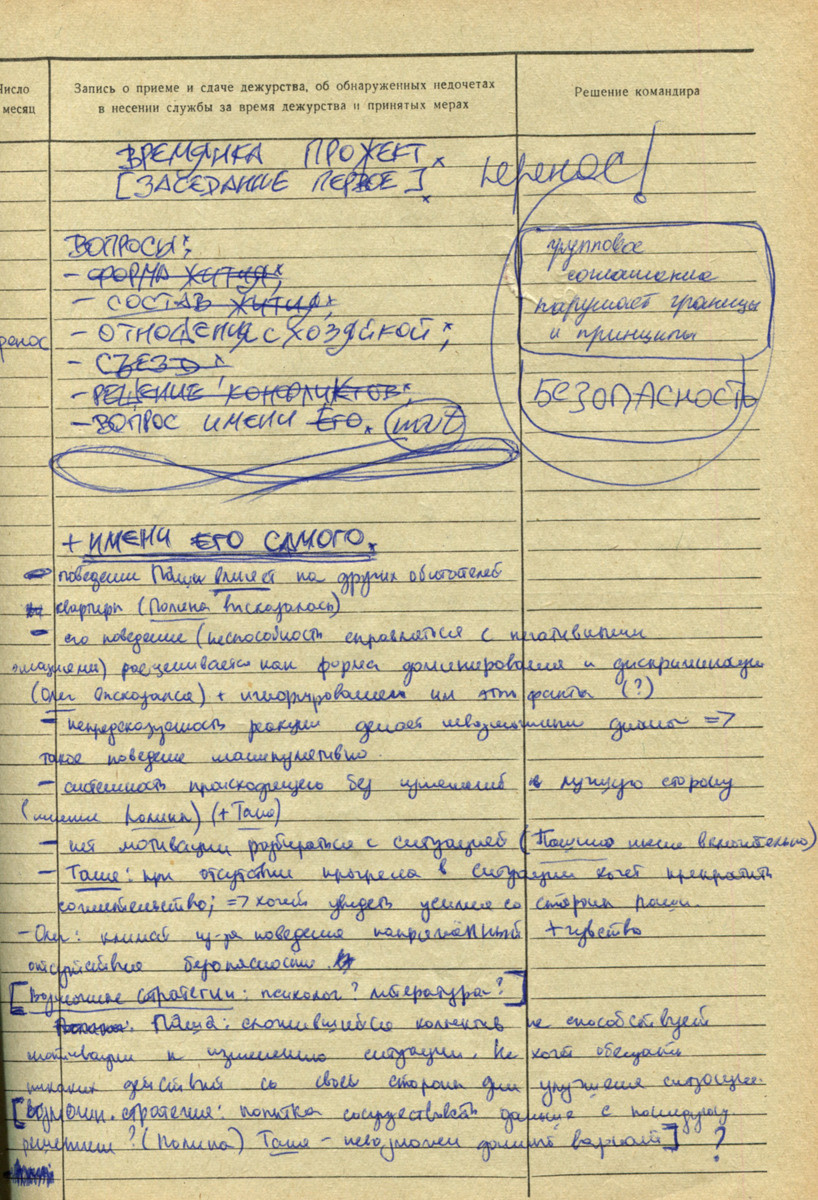 Число
месяц
Запись о приеме и сдаче дежурства, об обнаруженных недочетах
в несении службы за время дежурства и принятых мерах
Решение командира
ВРЕМЯНКА ПРОЖЕКТ
[ЗАСЕДАНИЕ ПЕРВОЕ]
перенос!
ВОПРОСЫ:
– ФОРМА ЖИТИЯ;
– СОСТАВ ЖИТИЯ;
– ОТНОШЕНИЯ С ХОЗЯЙКОЙ;
– СЪЕЗД
– РЕШЕНИЕ КОНФЛИКТОВ;
– ВОПРОС ИМЕНИ ЕГО.
групповое
соглашение
нарушает границы
и принципы
БЕЗОПАСНОСТЬ
ренос
+ ИМЕНИ ЕГО САМОГО.
– поведение Паши влияет на других обитателей
квартиры (Полина высказалась)
– его поведение (неспособность справляться с негативными
эмоциями) расценивается как форма доминирования и дискриминации
(Олег высказался) + игнорированием им этого факта (?)
– непредсказуемость реакции делает невозможными =>
такое поведение манипулятивно.
– системность происходящего без изменений в лучшую сторону
(мнение Полина) (+ Таша)
– нет мотивации разбираться с ситуацией (Пашино мнение включительно)
– Таше: при отсутствии прогресса в ситуации хочет прекратить
сожительство; => хочет увидеть усилия со стороны Паши.
– Олег: климат из-за поведения напряжённый + чувство
отсутствия безопасности.
[Возможные стратегии: психолог? литература?]
Паша: сложившийся коллектив не способствует
мотивации к изменению ситуации. Не хочет обещать
никаких действий со своей стороны для улучшения ситуации.
[Возможн. стратегия: попытка сосуществовать дальше с последующ.
решением? (Полина) Таше – невозможен данный вариант] ?